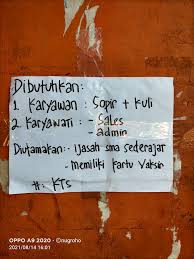 Dibutuhkan:
1. Karyawan : Sopir + Kuli
2. Karyawati : - Sales
- admin
Diutamakan : - ijasah sma Sederajar
- Memiliki Kartu Vaksin
#. KTS
OPPO A9 2020 · ©nugroho
2021/08/14 16:01